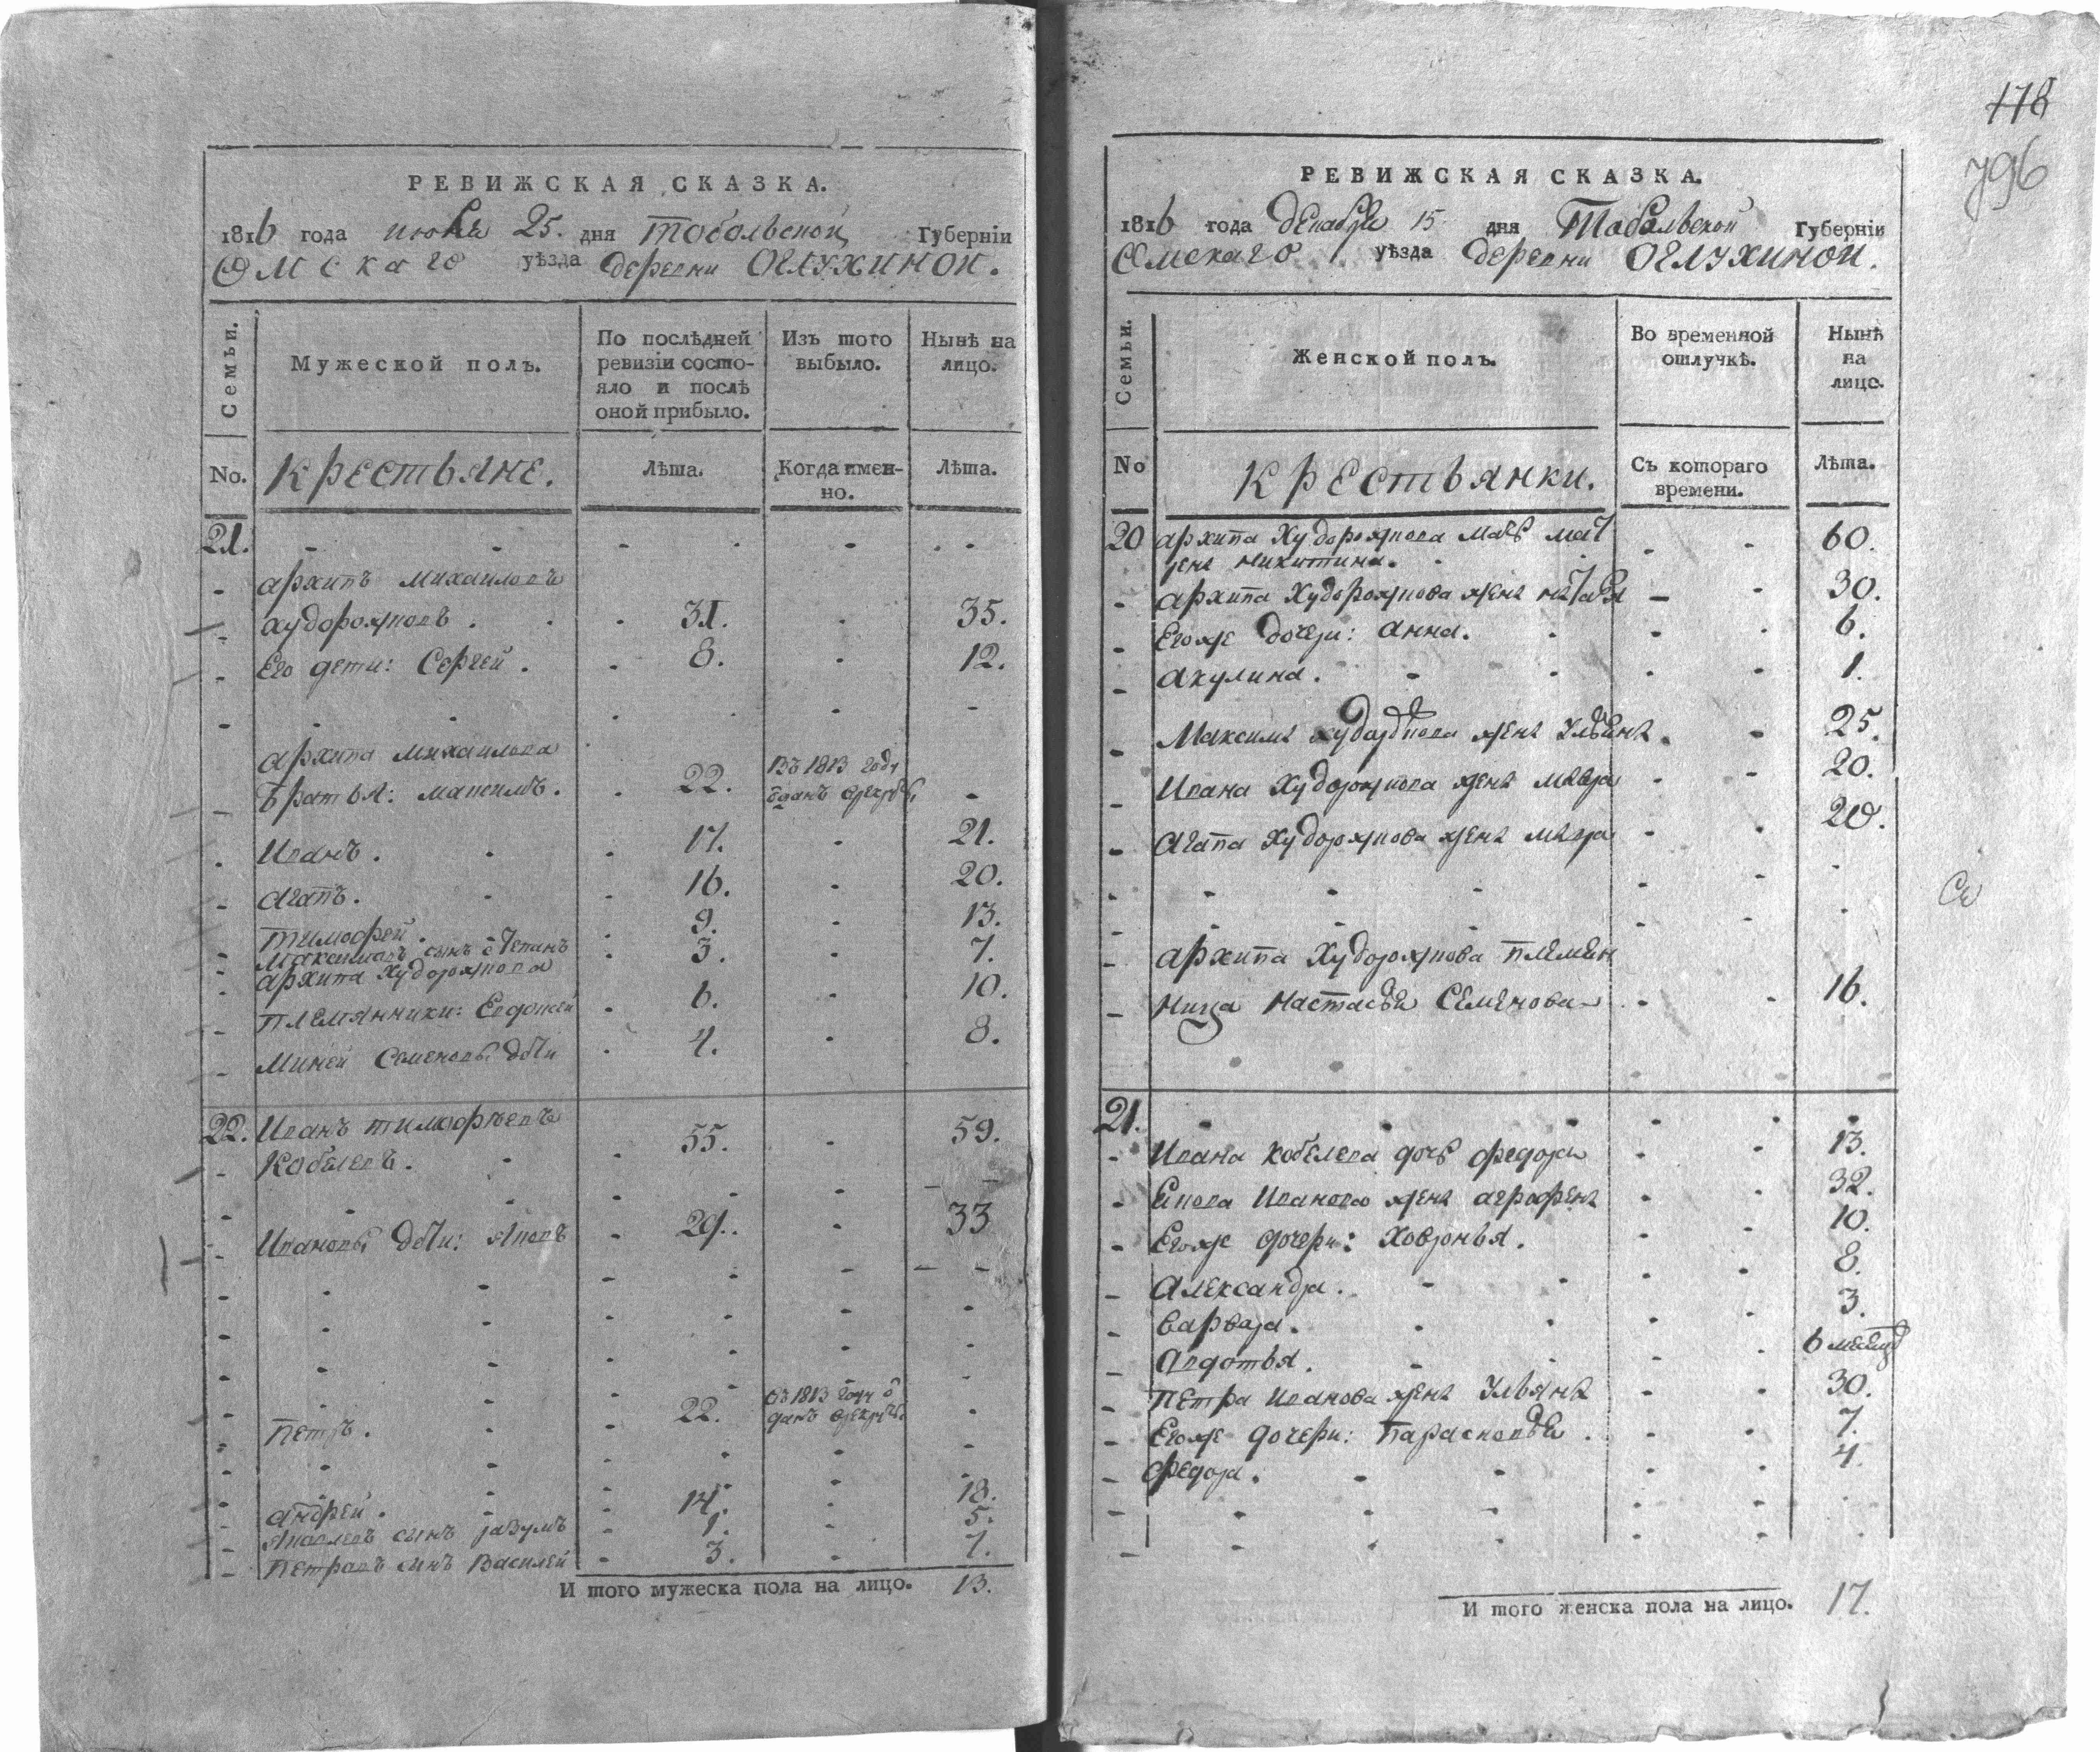 РЕВИЖСКАЯ СКАЗКА.
1816 года июня 25. дня Тобольской Губерніи
Омскаго уѣзда деревни Оглухиной.
Семьи.
Мужеской полъ.
По послѣдней ревизіи состояло и послѣ оной прибыло.
Изъ того выбыло.
Нынѣ на лицо.
No. Крестьяне. Лѣта. Когда именно. Лѣта.
21.
архипъ михаиловъ
худорожковъ. 31. 35.
Его дети: Сергей. 8. 12.
архипа михаилова
братья: максимъ. 22. Въ 1813 году отданъ врекруты
Иванъ. 17. 21.
агапъ. 16. 20.
тимофей. 9. 13.
Максимовъ сынъ степанъ 3. 7.
архипа худорожкова
племянники: Евдоким 6. 10.
Миней Семеновы дѣти 4. 8.
22. Иванъ тимофѣевъ
Кобелевъ. 55. 59.
Ивановы дѣти: Яковъ 29. 33
Петръ. 22. въ 1813 году отданъ врекруты.
андрей. 14. 18.
Яковлевъ сынъ 1. 5.
Петровъ сынъ Василей 3. 7.
И того мужеска пола на лицо. 13.
178
796
РЕВИЖСКАЯ СКАЗКА.
1816 года декабря 15 дня Тобольской Губерніи
Омскаго уѣзда деревни Оглухиной.
Семьи.
Женской полъ.
Во временной отлучкѣ.
Нынѣ на лицо.
No Крестьянки. Съ котораго времени. Лѣта.
20 архипа Худорожкова мать мат
рена никитина. 60.
архипа Худорожкова жена наталя 30.
Егоже дочери: анна. 6.
акулина. 1.
Максима худорожкова жена Ульяна. 25.
Ивана Худорожкова жена мавра 20.
агапа Худорожкова жена мавра 20.
архипа Худорожкова племян
ница настасья Семенова 16.
21.
Ивана кобелева дочь федора 13.
Якова Иванова жена агрофена 32.
Егоже дочери: Ховронья. 10.
Александра. 8.
варвара. 3.
авдотья. 6 месяцъ
петра иванова жена Ульяна 30.
Егоже дочери: Парасковья. 7.
федора. 4.
И того женска пола на лицо. 17.